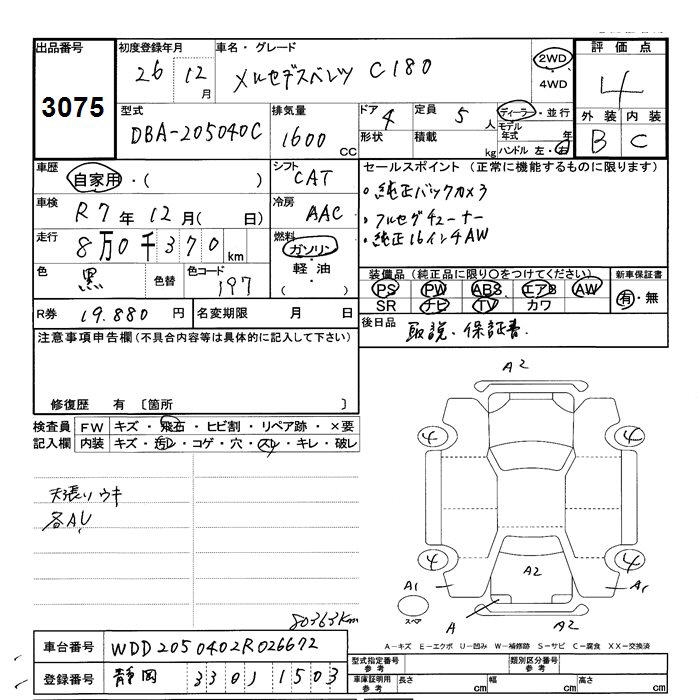 出品番号 初度登録年月 車名・グレード 評価点
3075 26 12月 メルセデスベンツ C180 2WD・4WD 4
型式 排気量 ドア 4 定員 5人 ディーラー・並行 外装 内装
DBA-205040C 1600CC 形状 積載 kg モデル年式 年 B C
ハンドル 左・右
車歴 シフト セールスポイント (正常に機能するものに限ります)
自家用・( ) CAT ・純正バックカメラ
車検 冷房 ・フルセグチューナー
R7年12月( 日) AAC ・純正16インチAW
走行 燃料
8万0千370km ガソリン・軽油・( )
色 黒 色替 色コード 197
装備品 (純正品に限り○をつけてください) 新車保証書
PS PW ABS エアB AW 有・無
SR ナビ TV カワ
R券 19.880円 名変期限 月 日
後日品 取説、保証書.
注意事項申告欄 (不具合内容等は具体的に記入して下さい)
修復歴 有 〔箇所 〕
検査員 FW キズ・飛石・ヒビ割・リペア跡・×要
記入欄 内装 キズ・汚レ・コゲ・穴・スレ・キレ・破レ
天張リウキ
各AU
80363Km
A2
4 4
4 4
A1 A2 A1
スペア A A2
A-キズ E-エクボ U-凹み W-補修跡 S-サビ C-腐食 XX-交換済
車台番号 WDD2050402R026672
登録番号 静岡 330 1 1503
型式指定番号 参考 類別区分番号 参考
車庫証明用 参考 長さ cm 幅 cm 高さ cm